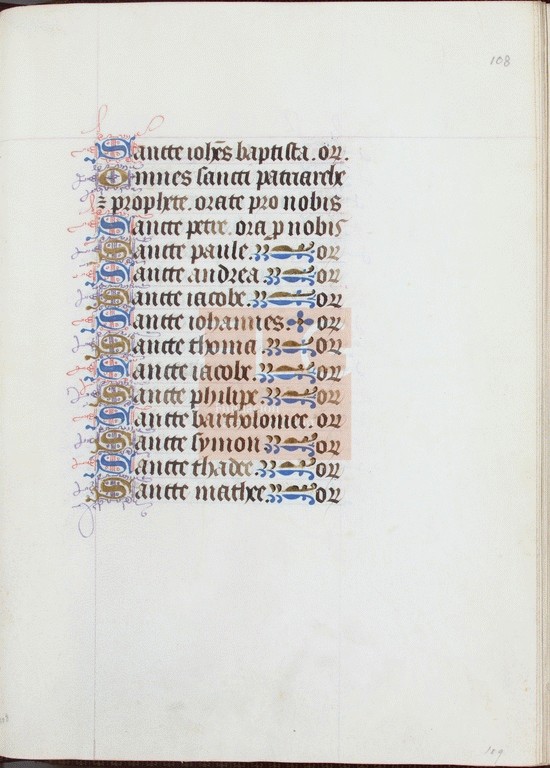 108
Sancte ioh̄es baptista. or.
Omnes sancti patriarche
⁊ prophete. orate pro nobis
Sancte petre. ora p nobis
Sancte paule. or
Sancte andrea. or
Sancte iacobe. or
Sancte iohannes. or
Sancte thoma or
Sancte iacobe. or
Sancte philipe or
Sancte bartholomee. or
Sancte symon or
Sancte thadee. or
Sancte mathee. or
109